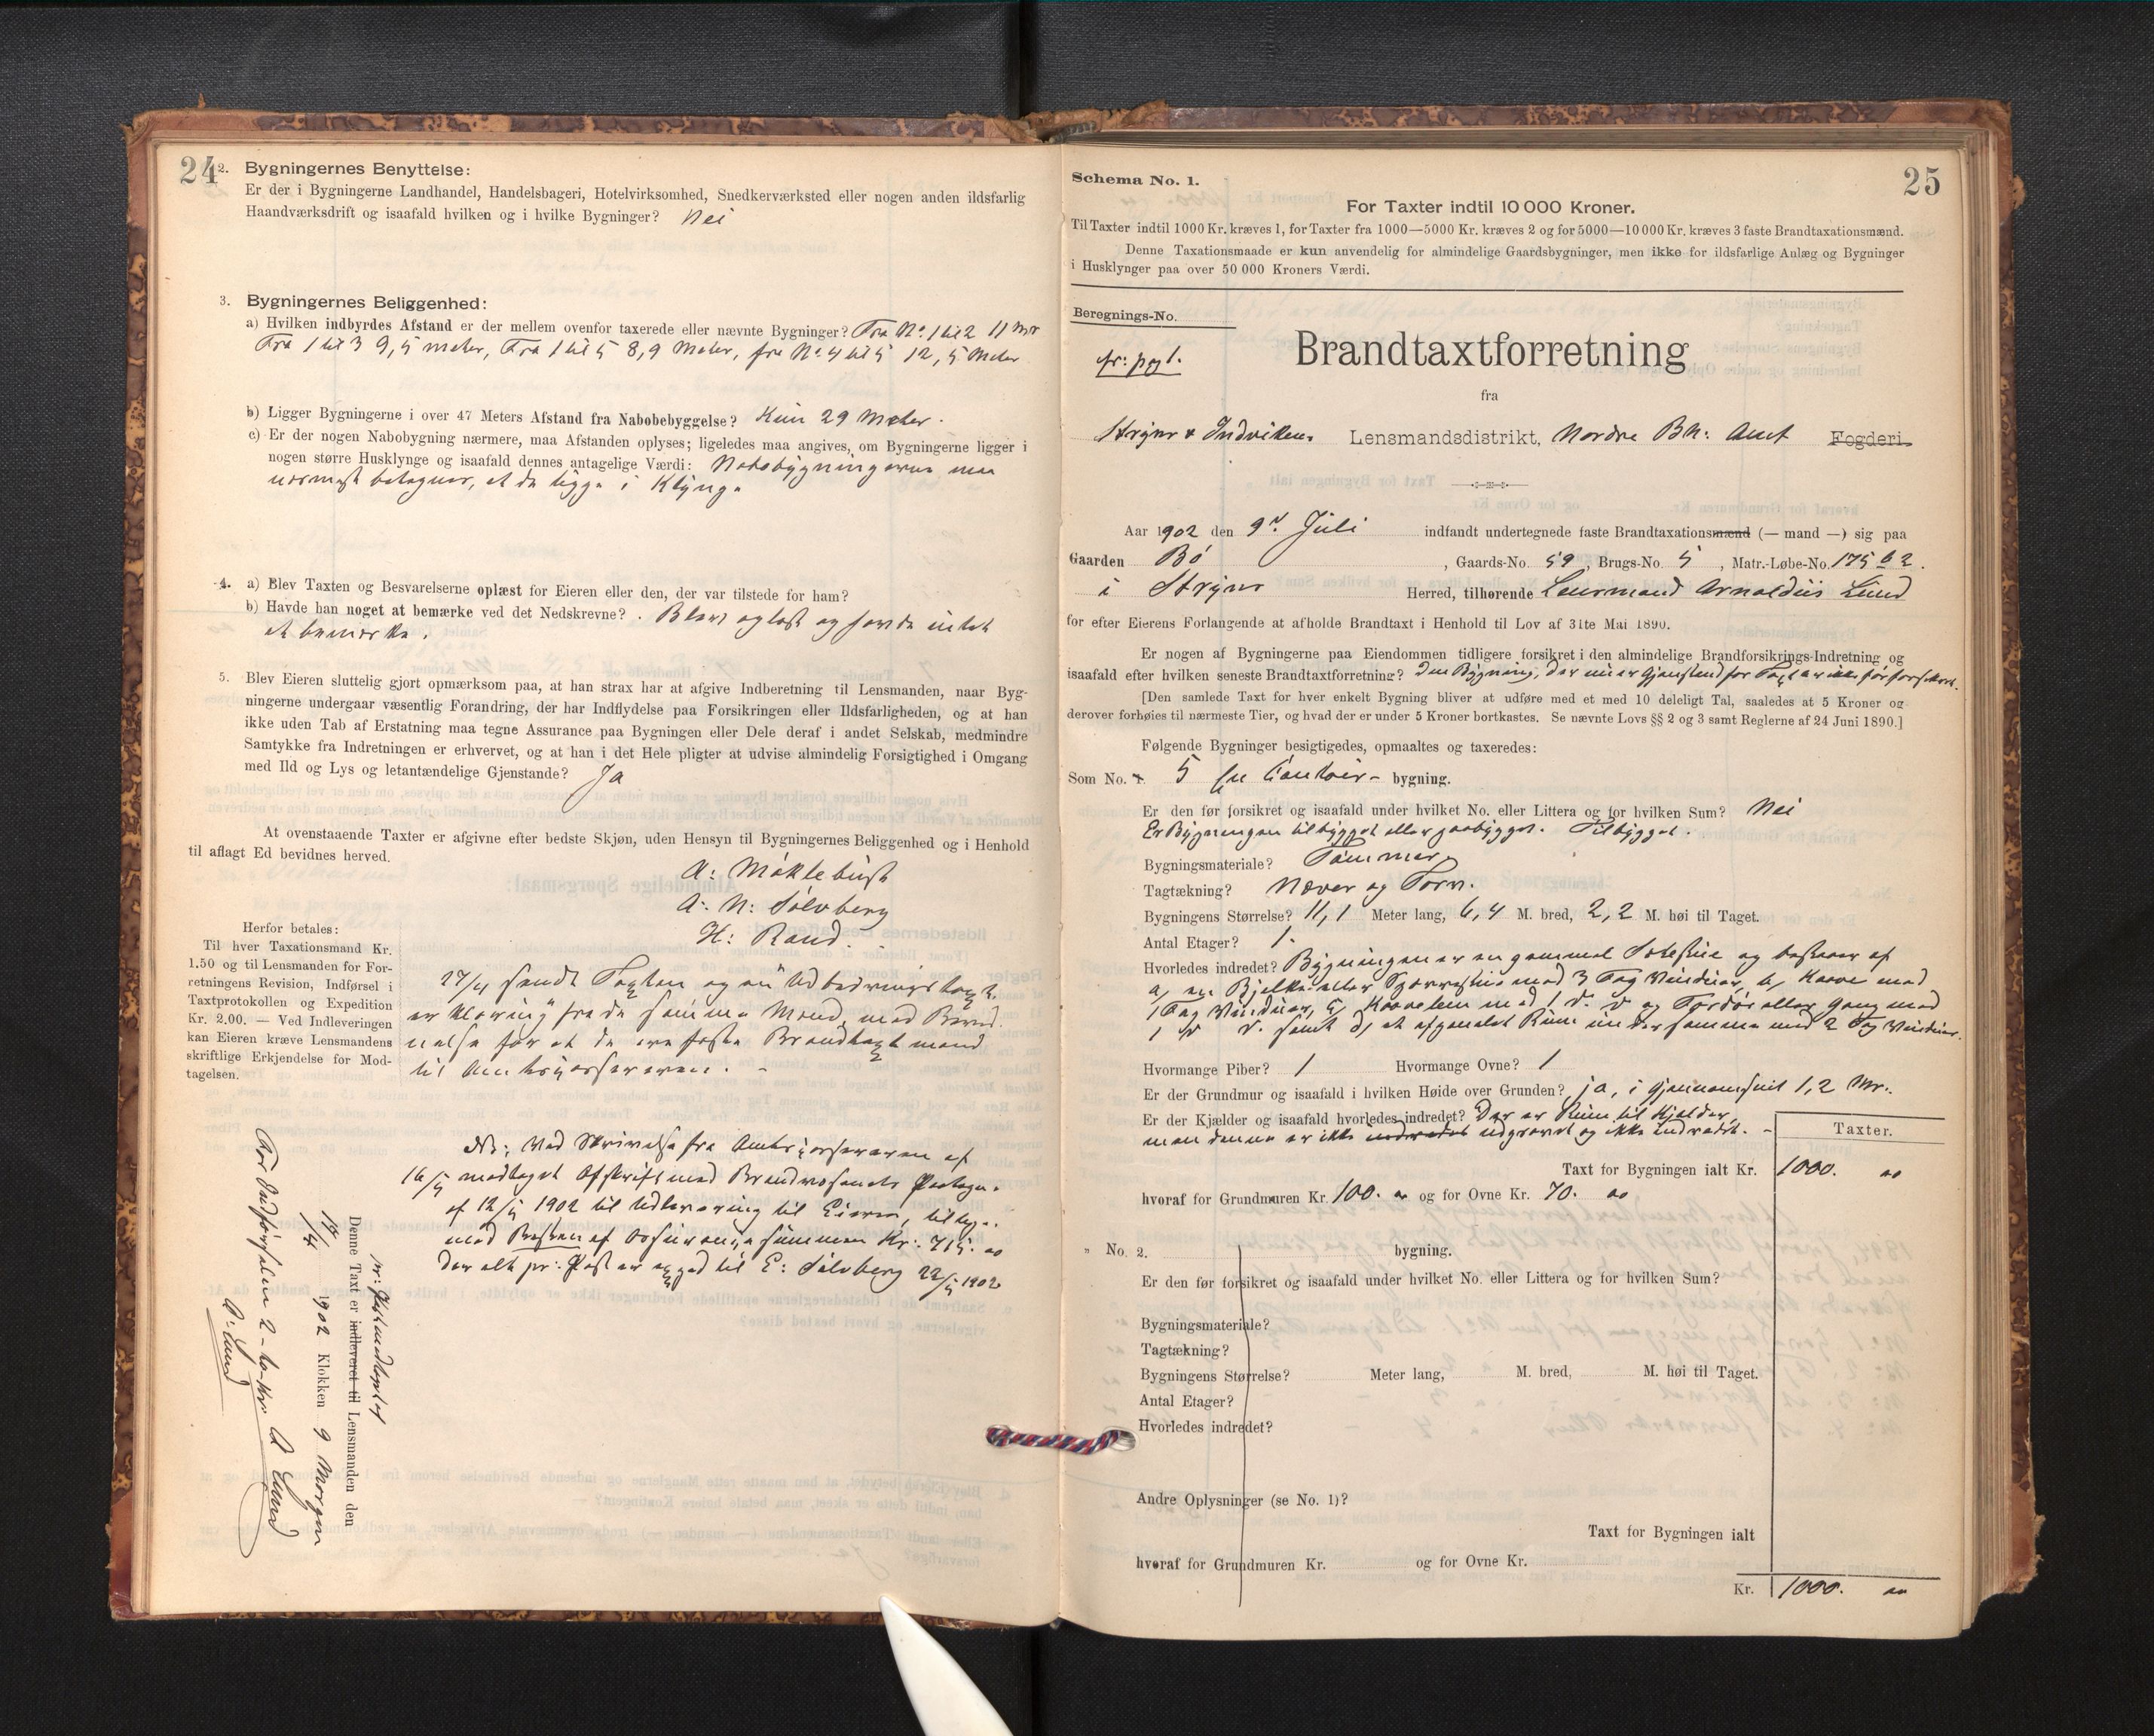 24
2. Bygningernes Benyttelse:
Er der i Bygningerne Landhandel, Handelsbageri, Hotelvirksomhed, Snedkerværksted eller nogen anden ildsfarlig
Haandværksdrift og isaafald hvilken og i hvilke Bygninger? Nei
3. Bygningernes Beliggenhed:
a) Hvilken indbyrdes Afstand er der mellem ovenfor taxerede eller nævnte Bygninger? Fra No. 1 til 2 11 Mr
Fra 1 til 3 9,5 meter, Fra 1 til 5 8,9 Meter, fra No. 4 til 5 12,5 Meter
b) Ligger Bygningerne i over 47 Meters Afstand fra Nabobebyggelse? Kun 29 Meter.
c) Er der nogen Nabobygning nærmere, maa Afstanden oplyses; ligeledes maa angives, om Bygningerne ligger i
nogen større Husklynge og isaafald dennes antagelige Værdi: Nabobygningerne maa
nærmest betegnes, at de ligge i Klynge
4. a) Blev Taxten og Besvarelserne oplæst for Eieren eller den, der var tilstede for ham?
b) Havde han noget at bemærke ved det Nedskrevne? . Blev oplæst og havde intet
at bemærke.
5. Blev Eieren sluttelig gjort opmærksom paa, at han strax har at afgive Indberetning til Lensmanden, naar Byg-
ningerne undergaar væsentlig Forandring, der har Indflydelse paa Forsikringen eller Ildsfarligheden, og at han
ikke uden Tab af Erstatning maa tegne Assurance paa Bygningen eller Dele deraf i andet Selskab, medmindre
Samtykke fra Indretningen er erhvervet, og at han i det Hele pligter at udvise almindelig Forsigtighed i Omgang
med Ild og Lys og letantændelige Gjenstande? Ja
At ovenstaaende Taxter er afgivne efter bedste Skjøn, uden Hensyn til Bygningernes Beliggenhed og i Henhold
til aflagt Ed bevidnes herved.
A: Møklebust
A: N: Sølvberg
H: Rand.
Herfor betales:
Til hver Taxationsmand Kr.
1.50 og til Lensmanden for For-
retningens Revision, Indførsel i
Taxtprotokollen og Expedition
Kr. 2.00. — Ved Indleveringen
kan Eieren kræve Lensmandens
skriftlige Erkjendelse for Mod-
tagelsen.
17/4 sendt Taxten og en Udbedringstaxt
fra de samme Mænd, med Bemærk-
nelse for at de ere faste Brandtaxtmænd
til Amtsjorsereren. -
NB: Ved Skrivelse fra
16/5 modtaget Afskrift med Brandkassens Paategn.
af 12/5 1902 til Udlevering til Eieren, tillige
med Resten af Assurancesummen Kr: 715. 00
der alt pr: Post er exped til E: Sølvberg 22/5 1902
Denne Taxt er indleveret til Lensmanden den
17/4 1902 Klokken 9 Morgen
A Lund
For Indførselen 2 - to - Kr.
A: Lund
25
Schema No. 1.
For Taxter indtil 10 000 Kroner.
Til Taxter indtil 1000 Kr. kræves 1, for Taxter fra 1000—5000 Kr. kræves 2 og for 5000—10 000 Kr. kræves 3 faste Brandtaxationsmænd.
Denne Taxationsmaade er kun anvendelig for almindelige Gaardsbygninger, men ikke for ildsfarlige Anlæg og Bygninger
i Husklynger paa over 50 000 Kroners Værdi.
Beregnings-No.
Brandtaxtforretning
fra
Stryns & Indvikens Lensmandsdistrikt, Nordre Bh: Amt Fogderi
Aar 1902 den 9de Juli indfandt undertegnede faste Brandtaxationsmænd (— mand —) sig paa
Gaarden Bø, Gaards-No. 59, Brugs-No. 5, Matr.-Løbe-No. 175 b 2.
i Stryns Herred, tilhørende Lensmand Arnoldus Lund
for efter Eierens Forlangende at afholde Brandtaxt i Henhold til Lov af 31te Mai 1890.
Er nogen af Bygningerne paa Eiendommen tidligere forsikret i den almindelige Brandforsikrings-Indretning og
isaafald efter hvilken seneste Brandtaxtforretning? Den Bygning, der nu er Gjenstand for Taxt er ikke før forsikret.
[Den samlede Taxt for hver enkelt Bygning bliver at udføre med et med 10 deleligt Tal, saaledes at 5 Kroner og
derover forhøies til nærmeste Tier, og hvad der er under 5 Kroner bortkastes. Se nævnte Lovs §§ 2 og 3 samt Reglerne af 24 Juni 1890.]
Følgende Bygninger besigtigedes, opmaaltes og taxeredes:
Som No. 1. 5 en Contoir- bygning.
Er den før forsikret og isaafald under hvilket No. eller Littera og for hvilken Sum? Nei
Er Bygningen tilbygget eller paabygget. Tilbygget.
Bygningsmateriale? Tømmer
Tagtækning? Næver og Torv.
Bygningens Størrelse? 11,1 Meter lang, 6,4 M. bred, 2,2 M. høi til Taget.
Antal Etager? 1.
Hvorledes indredet? Bygningen er en gammel og bestaaer af
a, en Bjelke eller Sperrestue med 3 Fag Vinduer, b, Kove med
1 Fag Vinduer, c, Kovelem med 1 d. v og Fordør eller Gang med
1 d. v. samt d, et afpanelet Rum under samme med 2 Fag Vinduer.
Hvormange Piber? 1 Hvormange Ovne? 1
Er der Grundmur og isaafald i hvilken Høide over Grunden? ja, i Gjennemsnit 1,2 Mr.
Er der Kjælder og isaafald hvorledes indredet? Der er Rum til Kjelder,
men denne er ikke indredet udgravet og ikke indredet. -
Taxter.
Taxt for Bygningen ialt Kr. 1000. 00
hvoraf for Grundmuren Kr. 100. 00 og for Ovne Kr. 70. 00
" No. 2. bygning.
Er den før forsikret og isaafald under hvilket No. eller Littera og for hvilken Sum?
Bygningsmateriale?
Tagtækning?
Bygningens Størrelse? Meter lang, M. bred, M. høi til Taget.
Antal Etager?
Hvorledes indredet?
Andre Oplysninger (se No. 1)?
Taxt for Bygningen ialt
hvoraf for Grundmuren Kr. og for Ovne Kr.
Kr. 1000. 00